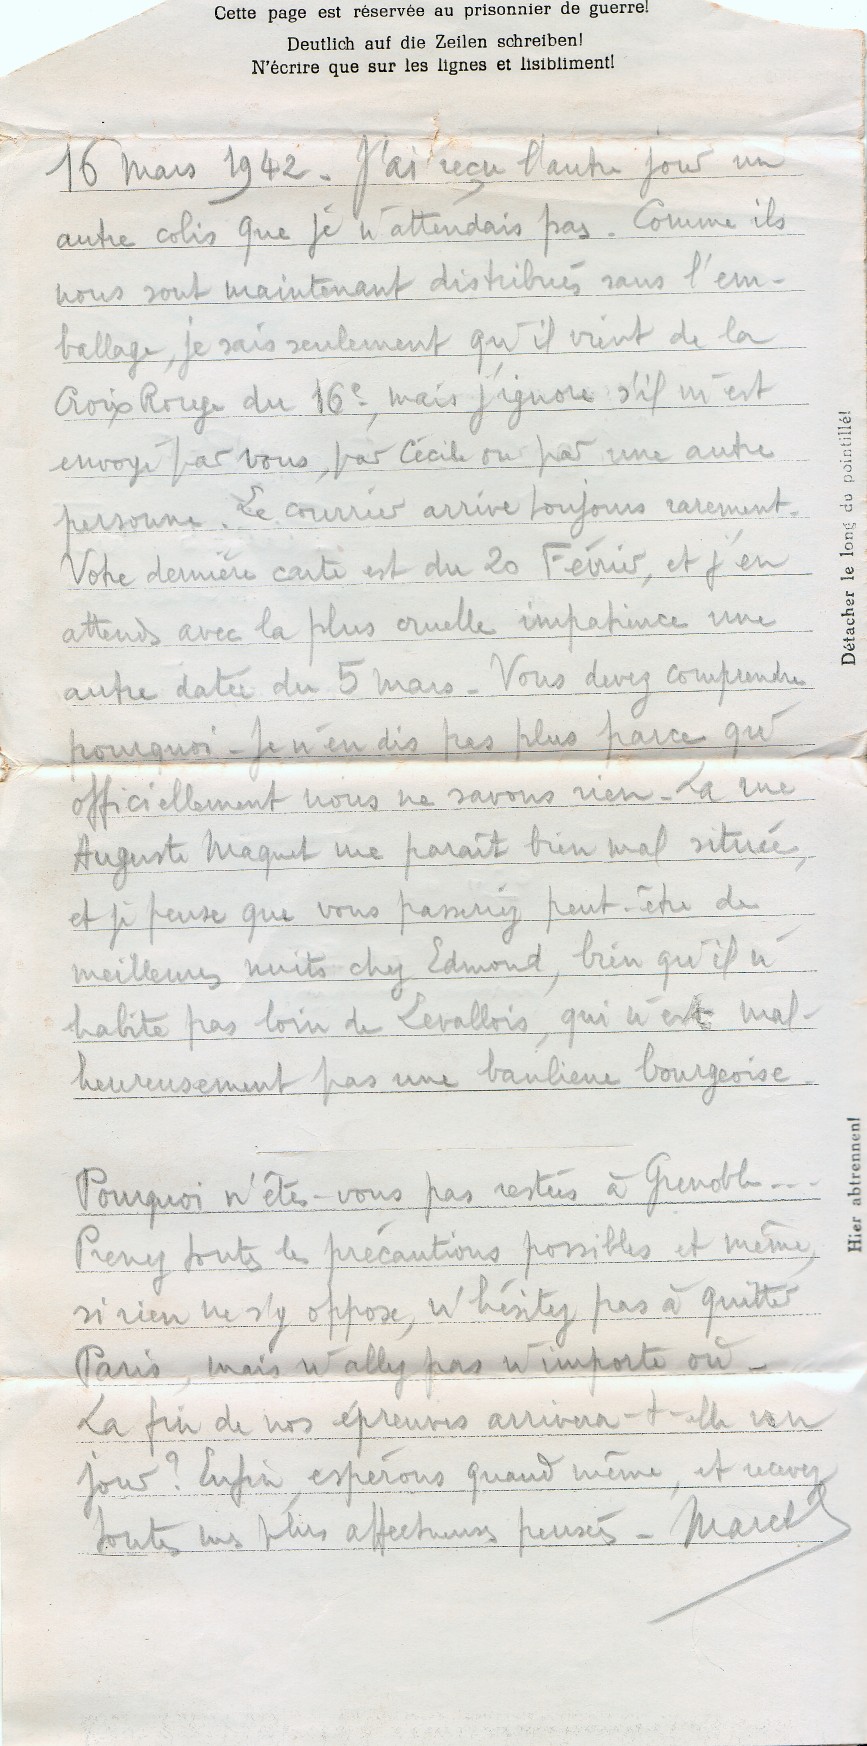 Cette page est réservée au prisonnier de guerre!
Deutlich auf die Zeilen schreiben!
N'écrire que sur les lignes et lisibliment!
16 Mars 1942. J'ai reçu l'autre jour un
autre colis que je n'attendais pas. Comme ils
nous sont maintenant distribués sans l'em-
ballage, je sais seulement qu'il vient de la
Croix Rouge du 16e, mais j'ignore s'il m'est
envoyé par vous, par Cécile ou par une autre
personne. Le courrier arrive toujours rarement.
Votre dernière carte est du 20 Février, et j'en
attends avec la plus cruelle impatience une
autre datée du 5 Mars - Vous devez comprendre
pourquoi - Je n'en dis pas plus parce qu'
officiellement nous ne savons rien - La rue
Auguste Maquet me paraît bien mal située,
et je pense que vous passeriez peut-être de
meilleures nuits chez Edmond, bien qu'il n'
habite pas loin de Levallois, qui n'est mal-
heureusement pas une banlieue bourgeoise.
Pourquoi n'êtes-vous pas restés à Grenoble...
Prenez toutes les précautions possibles et même,
si rien ne s'y oppose, n'hésitez pas à quitter
Paris, mais n'allez pas n'importe où -
La fin de nos épreuves arrivera-t-elle un
jour? Enfin, espérons quand même, et recevez
toutes mes plus affectueuses pensées - Marcel
Détacher le long du pointillé!
Hier abtrennen!